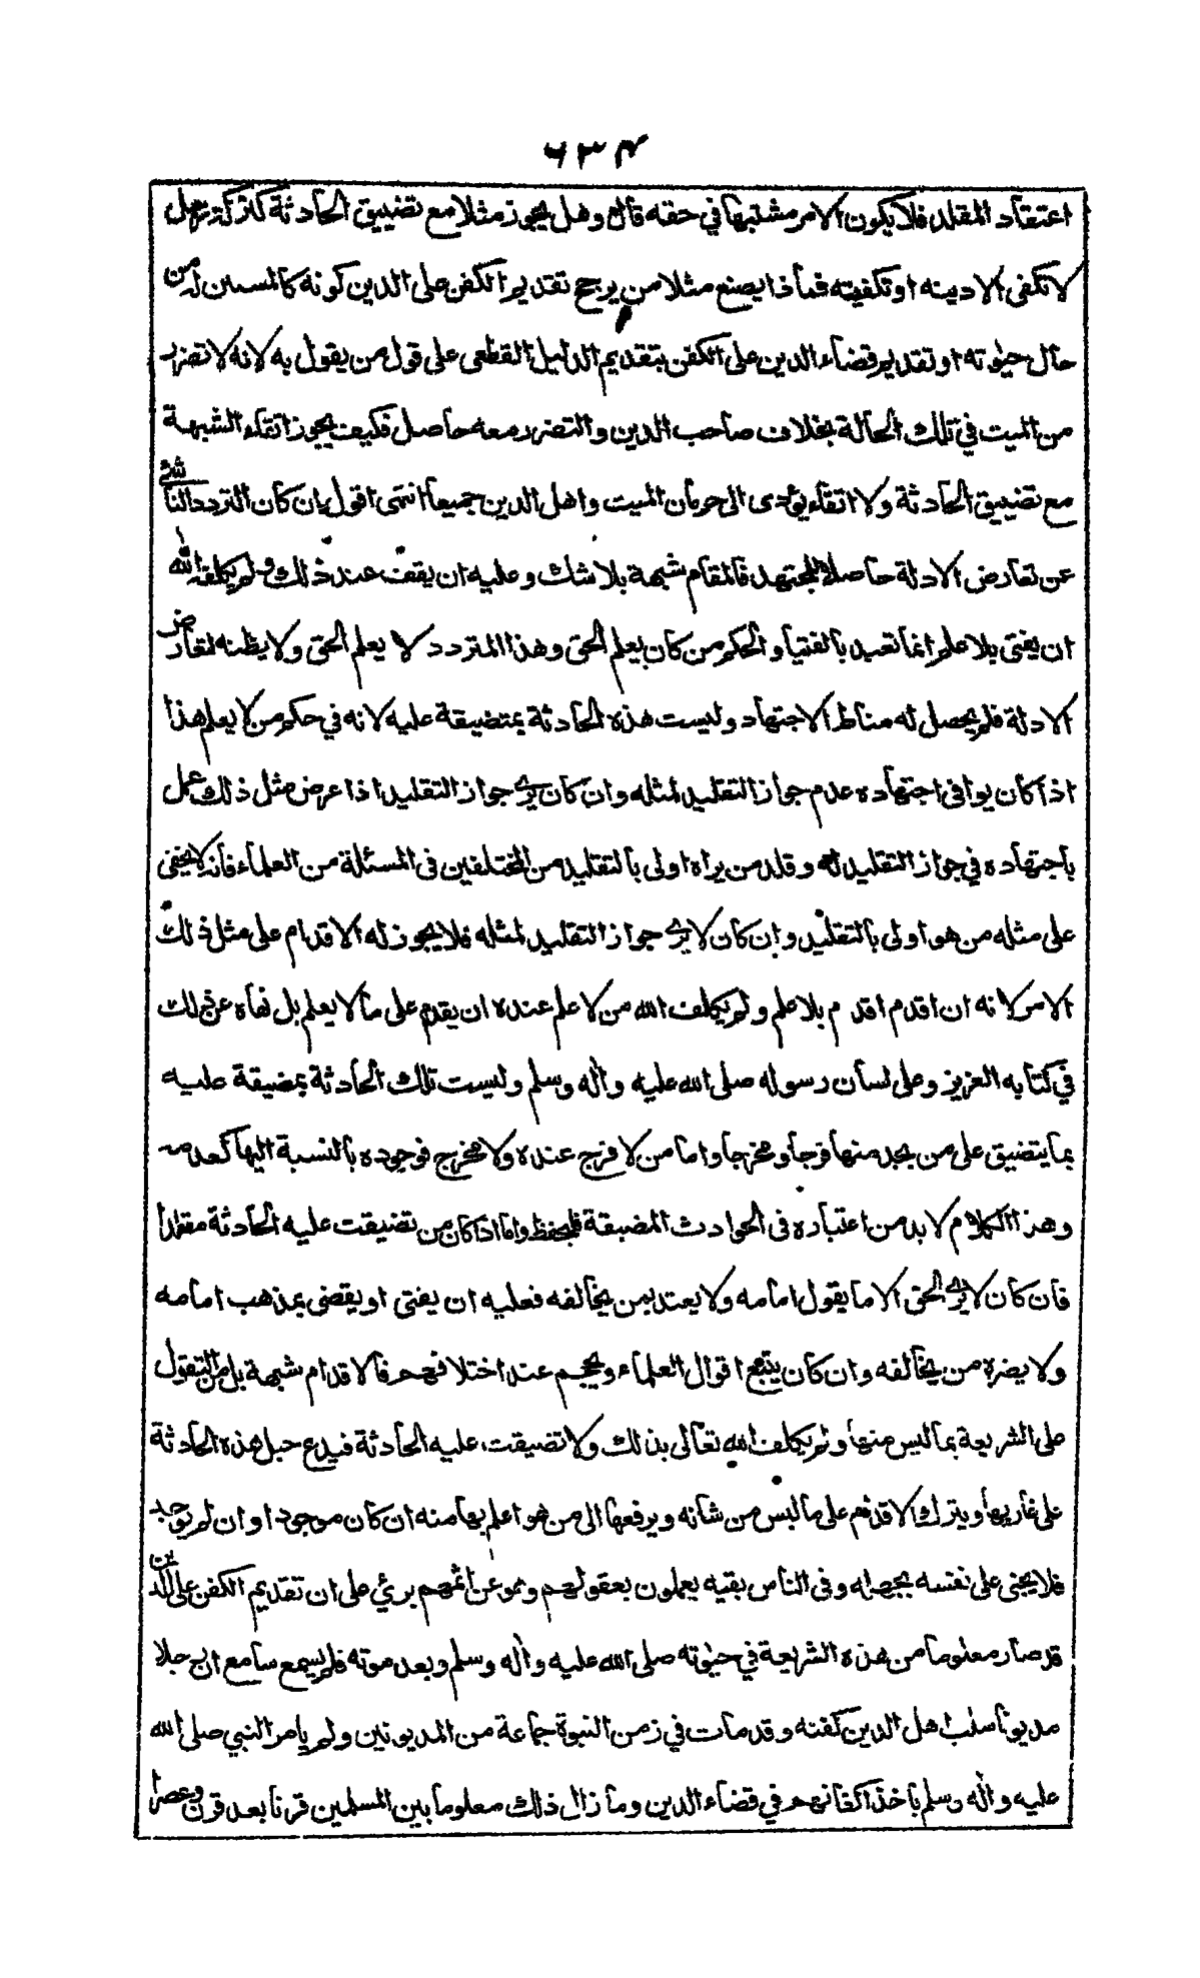 ۶۳۴
اعتقاد المقلد فلا يكون الامر مشتبها في حقه قال و هل يجوز مثلا مع تضييق الحادثة كتركة رجل
لا تكفى الا دينه او تكفيته فماذا يصنع مثلا من يرجح تقديم الكفن على الدين كونه كالمستثنى له من
حال حيوته او تقديم قضاء الدين على الكفن بتقديم الدليل القطعى على قول من يقول به لانه لا تضرر
من الميت في تلك الحالة بخلاف صاحب الدين والتضرر معه حاصل فكيف يجوز اتقاء الشبهة
مع تضييق الحادثة ولا اتقاء يؤدى الى حرمان الميت واهل الدين جميعا انتهى اقول ان كان التردد الناشئ
عن تعارض الادلة حاصلا للمجتهد فالمقام شبهة بلا شك وعليه ان يقف عند ذلك ولم يكلفه الله
ان يفتى بلا علم انما تعبد بالفتيا والحكم من كان يعلم الحق وهذا المتردد لا يعلم الحق ولا يظنه لتعارض
الادلة فلم يحصل له مناط الاجتهاد وليست هذه الحادثة بمتضيقة عليه لانه في حكم من لا يعلم هذا
اذا كان يوافى اجتهاده عدم جواز التقليد لمثله وان كان يرى جواز التقليد اذا عرض مثل ذلك عمل
باجتهاده في جواز التقليد له وقلد من يراه اولى بالتقليد من المختلفين فى المسئلة من العلماء فانه لا يخفى
على مثله من هو اولى بالتقليد وان كان لا يرى جواز التقليد لمثله فلا يجوز له الاقدام على مثل ذلك
الامر لانه ان اقدم اقدم بلا علم ولم يكلف الله من لا علم عنده ان يقدم على ما لا يعلم بل نهاه عن ذلك
في كتابه العزيز وعلى لسان رسوله صلى الله عليه واله وسلم وليست تلك الحادثة بمضيقة عليه
بما يتضيق على من يجد منها فرجا و مخرجا واما من لا فرج عنده ولا مخرج فوجوده بالنسبة اليها كعدمه
وهذا الكلام لا بد من اعتباره فى الحوادث المضيقة فليحفظ واما اذا كان من تضيقت عليه الحادثة مقلدا
فان كان لا يرى الحق الا ما يقول امامه ولا يعتد بمن يخالفه فعليه ان يفتى او يقضى بمذهب امامه
ولا يضره من يخالفه وان كان يتبع اقوال العلماء ويحجم عند اختلافهم فالاقدام شبهة بل من التقول
على الشريعة بما ليس منها ولم يكلف الله تعالى بذلك ولا تضيقت عليه الحادثة فيدع حبل هذه الحادثة
على غاربها ويترك الاقدام على ما ليس من شانه ويرفعها الى من هو اعلم بها منه ان كان موجودا وان لم يوجد
فلا يجنى على نفسه بجهله وفى الناس بقيه يعملون بعقولهم وهو عن اثمهم برئي على ان تقديم الكفن على الدين
قد صار معلوما من هذه الشريعة في حيوته صلى الله عليه واله وسلم وبعد موته فلم يسمع سامع ان رجلا
مديونا سلب اهل الدين كفنه وقد مات في زمن النبوة جماعة من المديونين ولم يامر النبي صلى الله
عليه واله وسلم باخذ اكفانهم في قضاء الدين وما زال ذلك معلوما بين المسلمين قرنا بعد قرن وعصرا